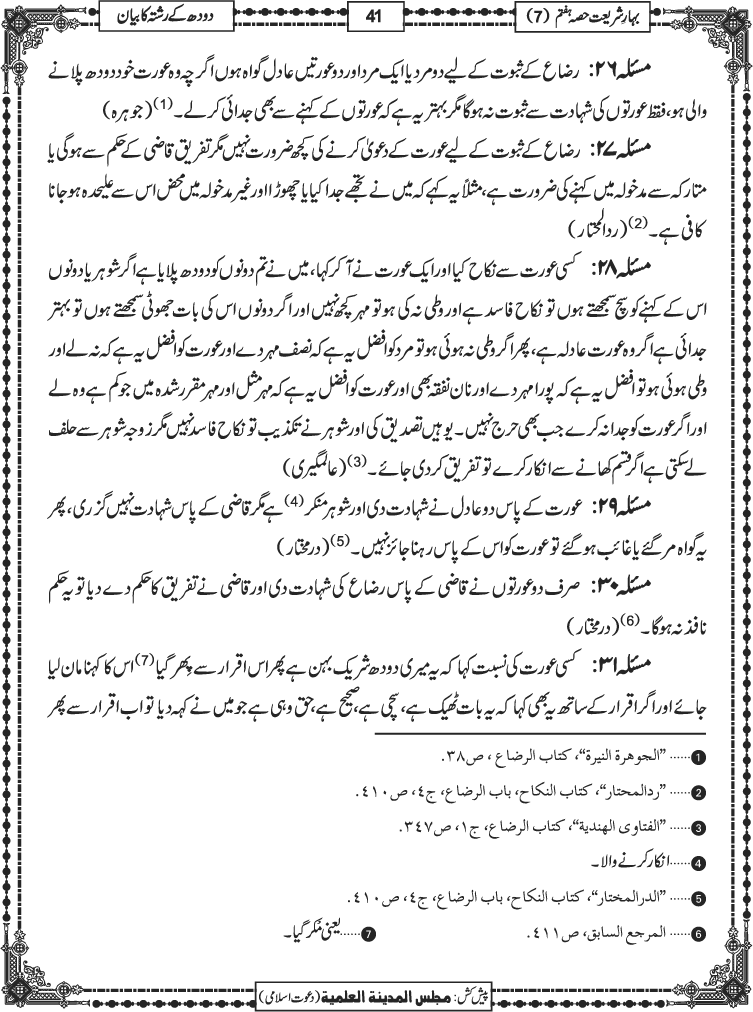 بہارِ شریعت حصہ ہفتم (7)
41
دودھ کے رشتہ کا بیان
مسئلہ ۲۶: رضاع کے ثبوت کے لیے دو مرد یا ایک مرد اور دو عورتیں عادل گواہ ہوں اگرچہ وہ عورت خود دودھ پلانے
والی ہو، فقط عورتوں کی شہادت سے ثبوت نہ ہوگا مگر بہتر یہ ہے کہ عورتوں کے کہنے سے بھی جدائی کرلے۔(1) (جوہرہ)
مسئلہ ۲۷: رضاع کے ثبوت کے لیے عورت کے دعویٰ کرنے کی کچھ ضرورت نہیں مگر تفریق قاضی کے حکم سے ہوگی یا
متارکہ سے مدخولہ میں کہنے کی ضرورت ہے، مثلاً یہ کہے کہ میں نے تجھے جدا کیا یا چھوڑا اور غیر مدخولہ میں محض اس سے علیحدہ ہو جانا
کافی ہے۔(2) (ردالمحتار)
مسئلہ ۲۸: کسی عورت سے نکاح کیا اور ایک عورت نے آ کر کہا، میں نے تم دونوں کو دودھ پلایا ہے اگر شوہر یا دونوں
اس کے کہنے کو سچ سمجھتے ہوں تو نکاح فاسد ہے اور وطی نہ کی ہو تو مہر کچھ نہیں اور اگر دونوں اس کی بات جھوٹی سمجھتے ہوں تو بہتر
جدائی ہے اگر وہ عورت عادلہ ہے، پھر اگر وطی نہ ہوئی ہو تو مرد کو افضل یہ ہے کہ نصف مہر دے اور عورت کو افضل یہ ہے کہ نہ لے اور
وطی ہوئی ہو تو افضل یہ ہے کہ پورا مہر دے اور نان نفقہ بھی اور عورت کو افضل یہ ہے کہ مہر مثل اور مہر مقرر شدہ میں جو کم ہے وہ لے
اور اگر عورت کو جدا نہ کرے جب بھی حرج نہیں۔ یوہیں تصدیق کی اور شوہر نے تکذیب تو نکاح فاسد نہیں مگر زوجہ شوہر سے حلف
لے سکتی ہے اگر قسم کھانے سے انکار کرے تو تفریق کر دی جائے۔(3) (عالمگیری)
مسئلہ ۲۹: عورت کے پاس دو عادل نے شہادت دی اور شوہر منکر(4) ہے مگر قاضی کے پاس شہادت نہیں گزری، پھر
یہ گواہ مر گئے یا غائب ہو گئے تو عورت کو اس کے پاس رہنا جائز نہیں۔(5) (درمختار)
مسئلہ ۳۰: صرف دو عورتوں نے قاضی کے پاس رضاع کی شہادت دی اور قاضی نے تفریق کا حکم دے دیا تو یہ حکم
نافذ نہ ہوگا۔(6) (درمختار)
مسئلہ ۳۱: کسی عورت کی نسبت کہا کہ یہ میری دودھ شریک بہن ہے پھر اس اقرار سے پھر گیا(7) اس کا کہنا مان لیا
جائے اور اگر اقرار کے ساتھ یہ بھی کہا کہ یہ بات ٹھیک ہے، سچی ہے، صحیح ہے، حق وہی ہے جو میں نے کہہ دیا تو اب اقرار سے پھر
1 ...... ”الجوهرة النيرة“، كتاب الرضاع ، ص٣٨.
2 ...... ”ردالمحتار“، كتاب النكاح، باب الرضاع، ج٤، ص٤١٠.
3 ...... ”الفتاوى الهندية“، كتاب الرضاع، ج١، ص٣٤٧.
4 ...... انکار کرنے والا۔
5 ...... ”الدرالمختار“، كتاب النكاح، باب الرضاع، ج٤، ص٤١٠.
6 ...... المرجع السابق، ص٤١١.
7 ...... یعنی مُکر گیا۔
پیش کش: مجلس المدينة العلمية (دعوت اسلامی)